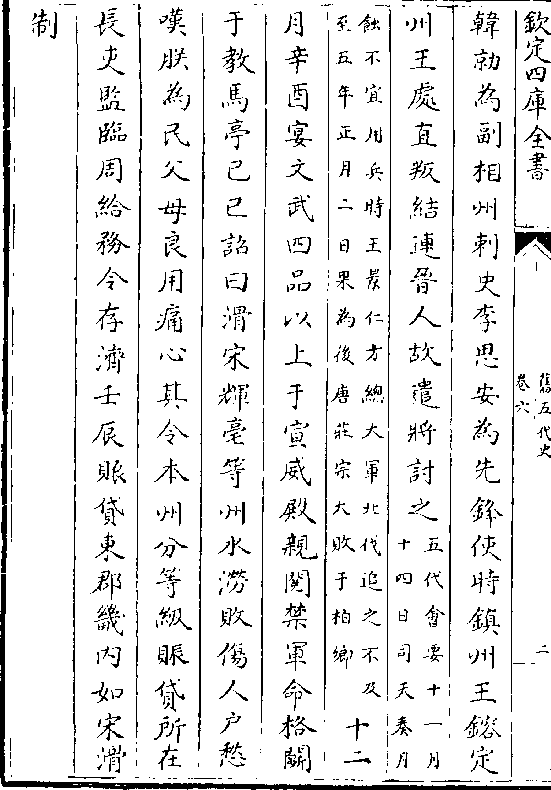 欽定四庫全書
舊五代史
卷六
二
韓勍為副相州刺史李思安為先鋒使時鎮州王鎔定
州王處直叛結連晉人故遣將討之
五代會要十一月
十四日司天奏月
蝕不宜用兵時王景仁方總大軍北伐追之不及
至五年正月二日果為後唐莊宗大敗于柏鄉
十二
月辛酉宴文武四品以上于宣威殿親閱禁軍命格鬭
于教馬亭己巳詔曰滑宋輝亳等州水澇敗傷人户愁
嘆朕為民父母良用痛心其令本州分等級賑貸所在
長吏監臨周給務令存濟壬辰賑貸東都畿内如宋滑
制